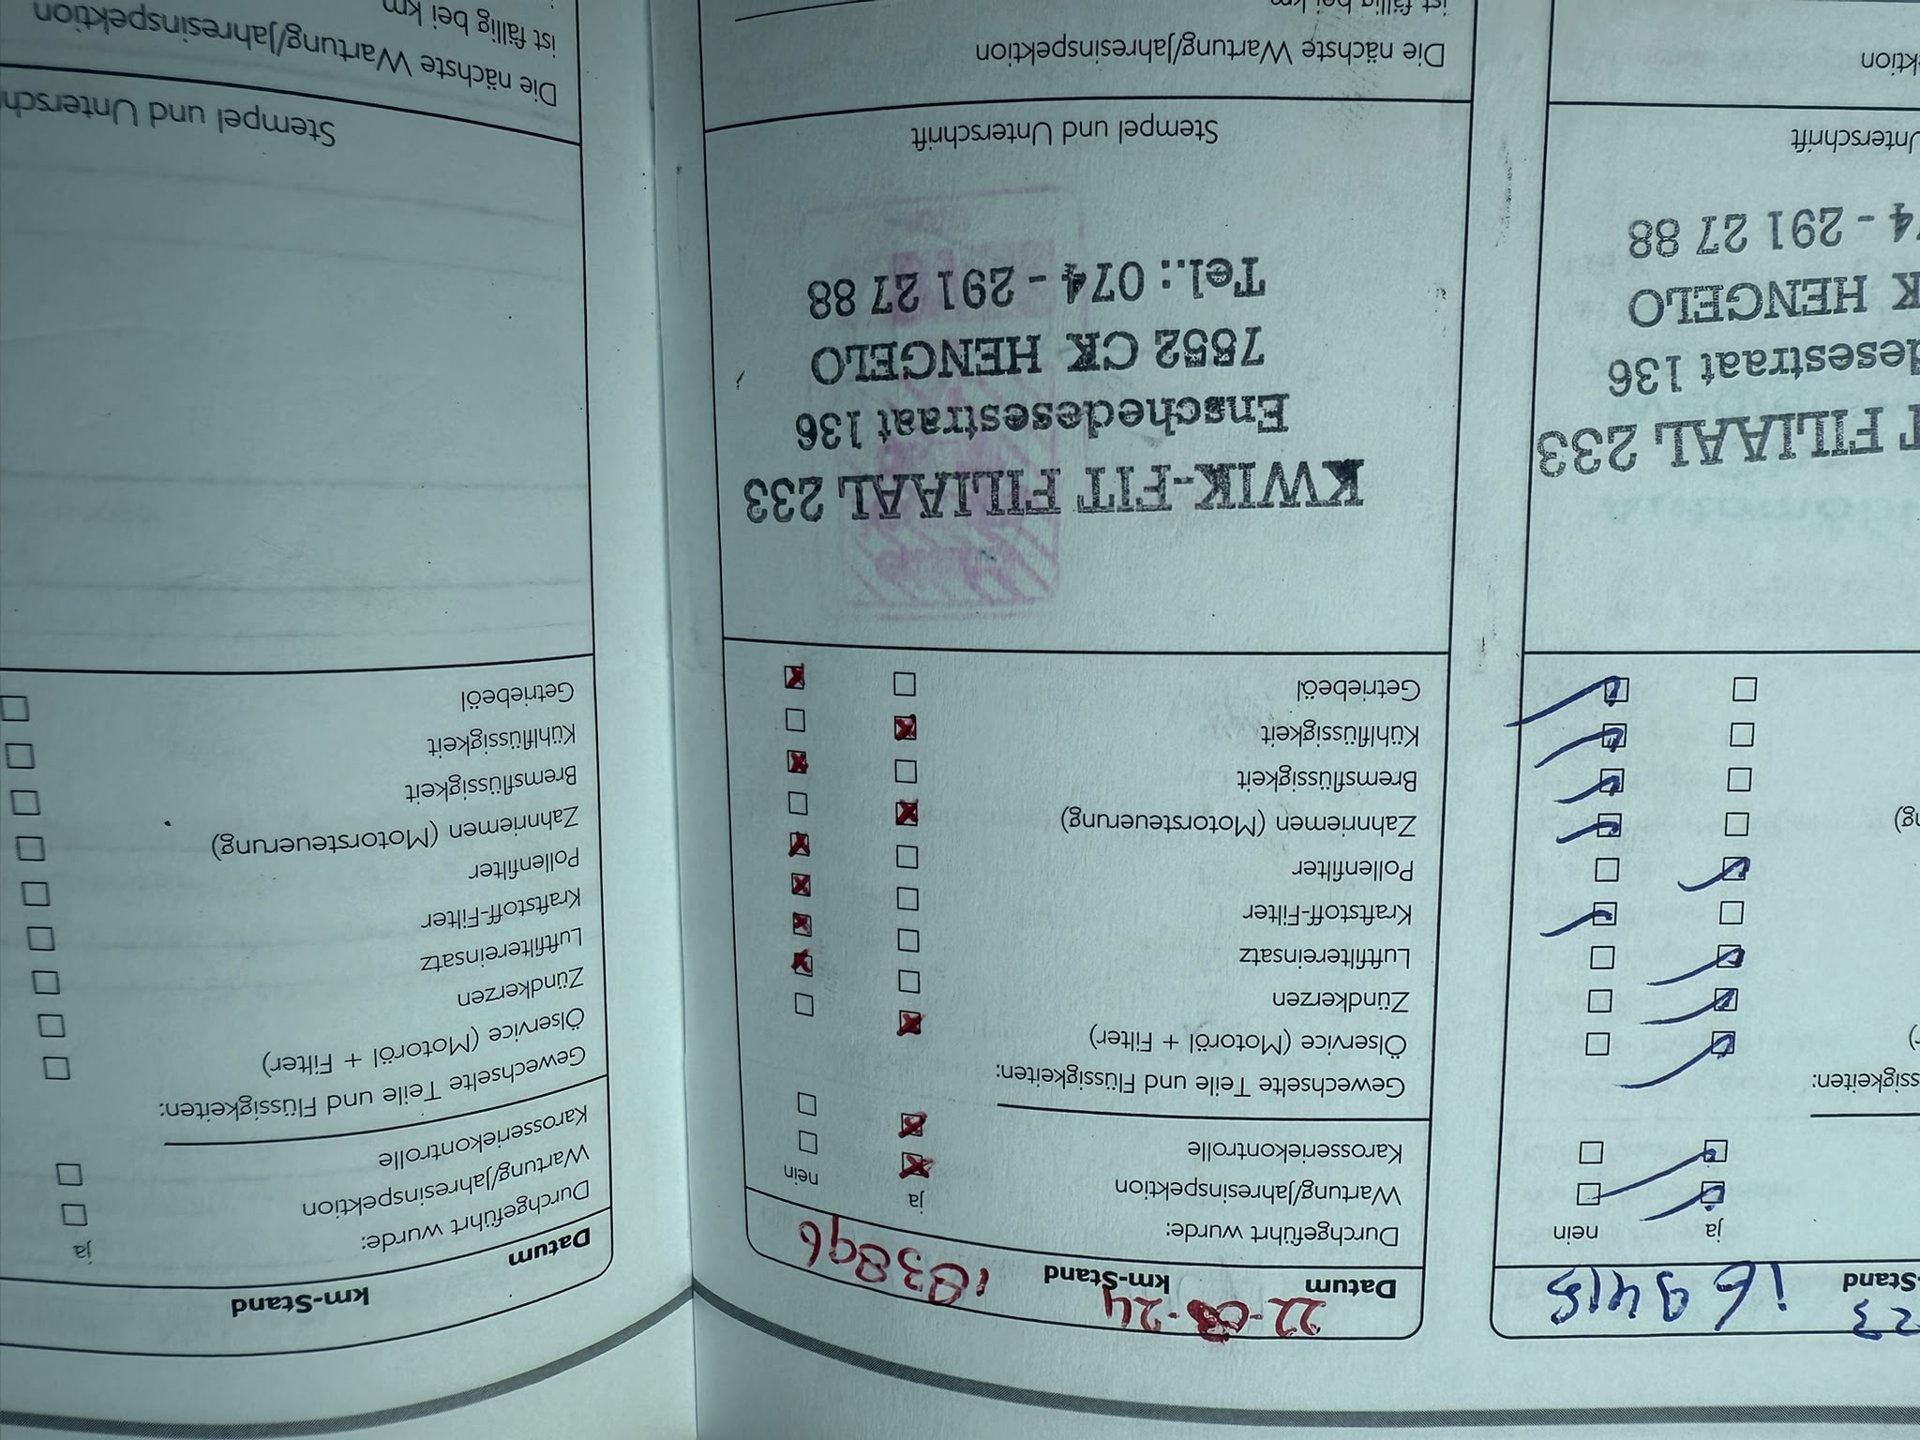 23
-Stand 169415
ja nein
ssigkeiten:
)
ng)
T FILIAAL 233
desestraat 136
K HENGELO
4 - 291 27 88
Unterschrift
ktion
Datum km-Stand 183896
Durchgeführt wurde: ja nein
Wartung/Jahresinspektion
Karosseriekontrolle
Gewechselte Teile und Flüssigkeiten:
Ölservice (Motoröl + Filter)
Zündkerzen
Luftfiltereinsatz
Kraftstoff-Filter
Pollenfilter
Zahnriemen (Motorsteuerung)
Bremsflüssigkeit
Kühlflüssigkeit
Getriebeöl
KWIK-FIT FILIAAL 233
Enschedesestraat 136
7552 CK HENGELO
Tel.: 074 - 291 27 88
Stempel und Unterschrift
Die nächste Wartung/Jahresinspektion
ist fällig bei km
Datum km-Stand
Durchgeführt wurde: ja
Wartung/Jahresinspektion
Karosseriekontrolle
Gewechselte Teile und Flüssigkeiten:
Ölservice (Motoröl + Filter)
Zündkerzen
Luftfiltereinsatz
Kraftstoff-Filter
Pollenfilter
Zahnriemen (Motorsteuerung)
Bremsflüssigkeit
Kühlflüssigkeit
Getriebeöl
Stempel und Untersch
Die nächste Wartung/Jahresinspektion
ist fällig bei km